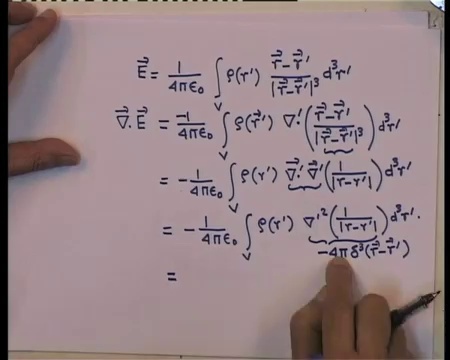 E⃗ = 1/4πε₀ ∫_V ρ(r') (r⃗ − r⃗')/|r⃗ − r⃗'|³ d³r'
∇⃗·E⃗ = −1/4πε₀ ∫_V ρ(r⃗') ∇'·((r⃗ − r⃗')/|r⃗ − r⃗'|³) d³r'
= −1/4πε₀ ∫_V ρ(r') ∇⃗'·∇⃗'(1/|r − r'|) d³r'
= −1/4πε₀ ∫_V ρ(r') ∇'²(1/|r − r'|) d³r'.
−4πδ³(r⃗ − r⃗')
=